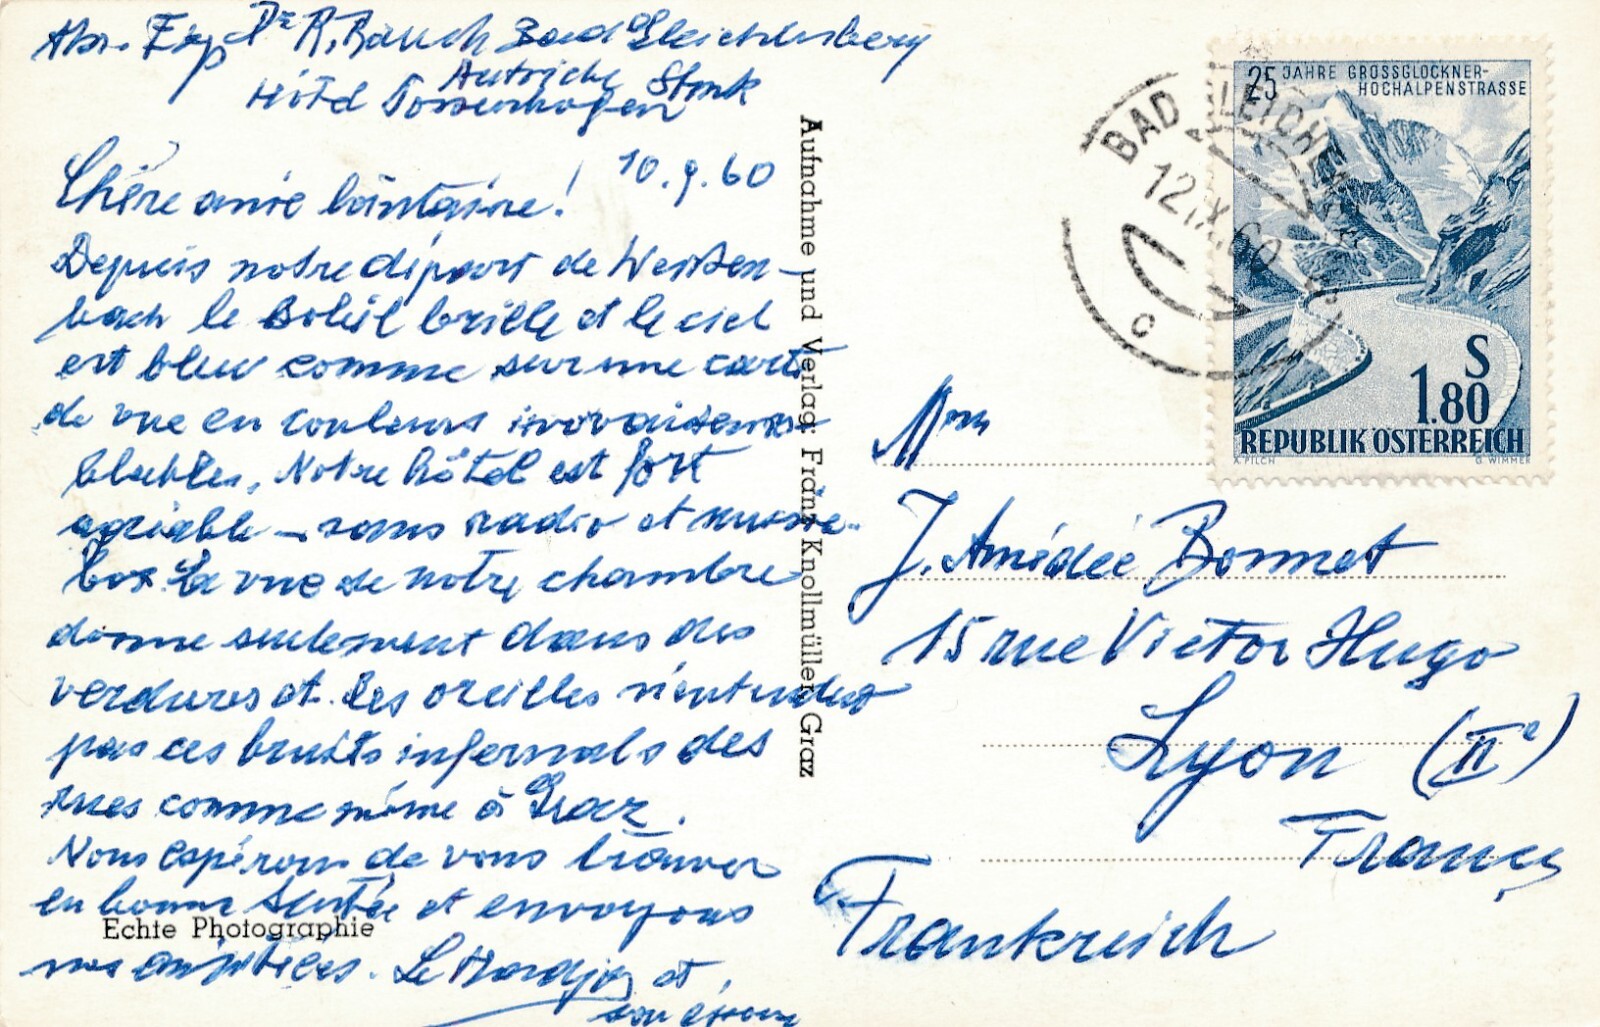 Abs. Exp Dr R. Rauch Bad Gleichenberg
Autriche Stmk
Hôtel
10.9.60
Chère amie lointaine!
Depuis notre départ de Weissen-
bach le soleil brille et le ciel
est bleu comme sur une carte
de vue en couleurs invraisem-
blables. Notre hôtel est fort
agréable – sans radio et musie-
box La vue de notre chambre
donne seulement dans des
verdures et les oreilles n'entendent
pas ces bruits infernals des
rues comme même à Graz.
Nous espérons de vous trouver
en bonne santée et envoyons
nos amitiées. Le et
son
Echte Photographie
Aufnahme und Verlag: Franz Knollmüller, Graz
BAD GLEICHENBERG
12.IX.60
c
25 JAHRE GROSSGLOCKNER-
HOCHALPENSTRASSE
S
1.80
REPUBLIK ÖSTERREICH
A. PILCH G. WIMMER
Mme
J. Amédée Bonnet
15 rue Victor Hugo
Lyon (IIe)
France
Frankreich